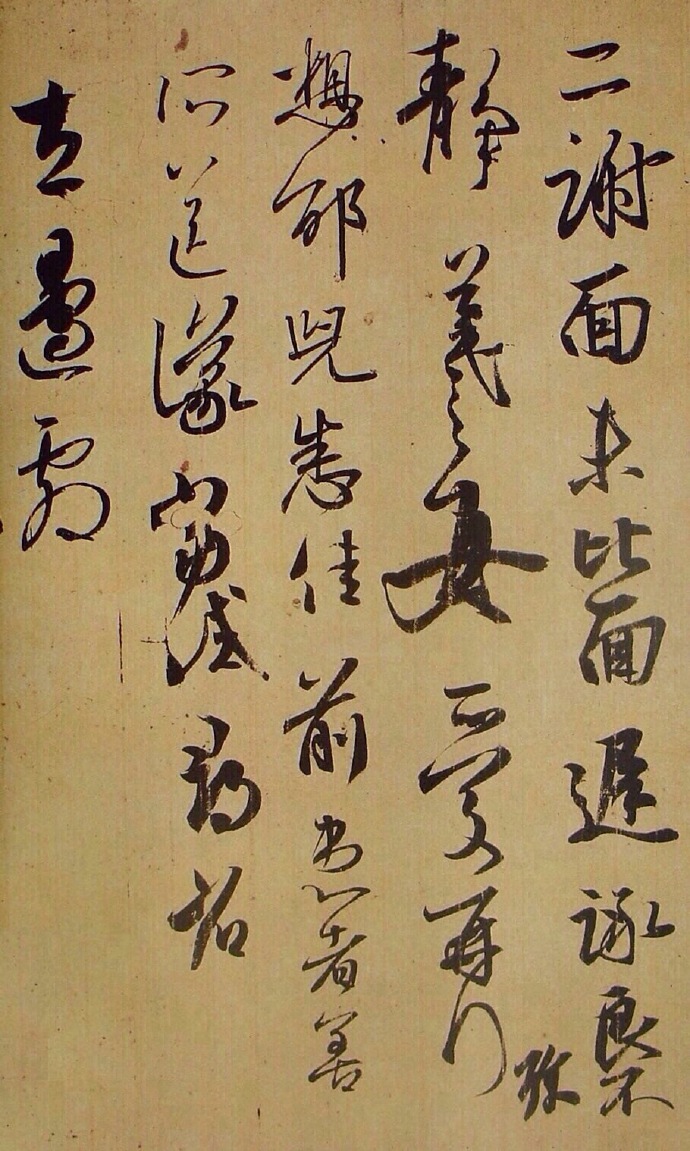 二謝面未比面遲詠良不
静羲之女愛再拜
想邰兒悉佳前患者善
所送議當試尋諸
左邊劇
珎